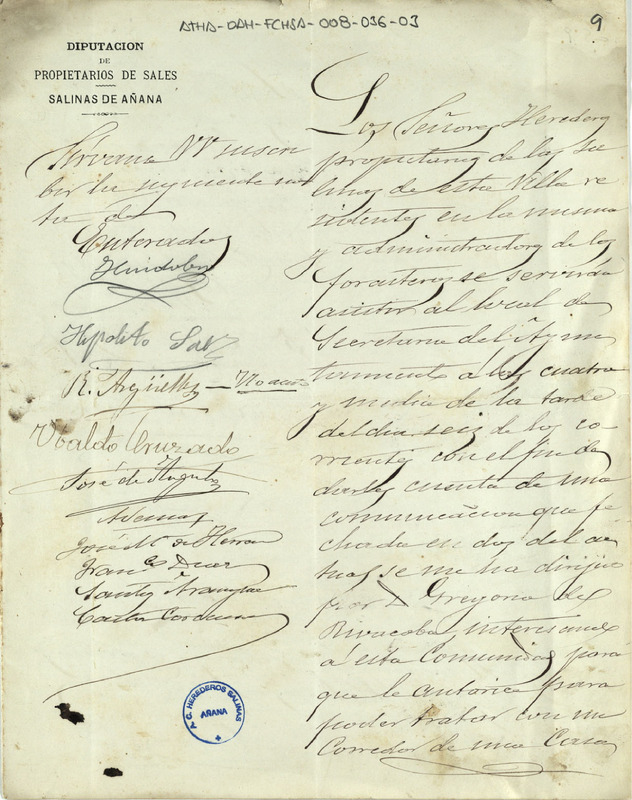 ATHA-DAH-FCHSA-008-036-03
9
DIPUTACION
DE
PROPIETARIOS DE SALES
SALINAS DE AÑANA
Sirvanse VV suscri
bir la siguiente no
ta de
Enterados
Hipolito Saez
R. Argüelles — No acus
Ubaldo Cruzado
José de Angulo
Ademas
José M. de Herran
Franco Diaz
Santos Aranguiz
Carlos
Los Señores Herederos
propietarios de las Sa
linas de esta Villa re
sidentes en la misma
y administradores de los
forasteros se servirán
asistir al local de
Secretaria del Ayun
tamiento á las cuatro
y media de la tarde
del dia seis de los co
rrientes con el fin de
darles cuenta de una
comunicacion que fe
chada en dos del ac
tual se me ha dirijido
por D Gregorio de
Rivacoba, interesando
á esta Comunidad para
que le autorice para
poder tratar con un
Corredor de una Casa
A C. HEREDEROS SALINAS
AÑANA